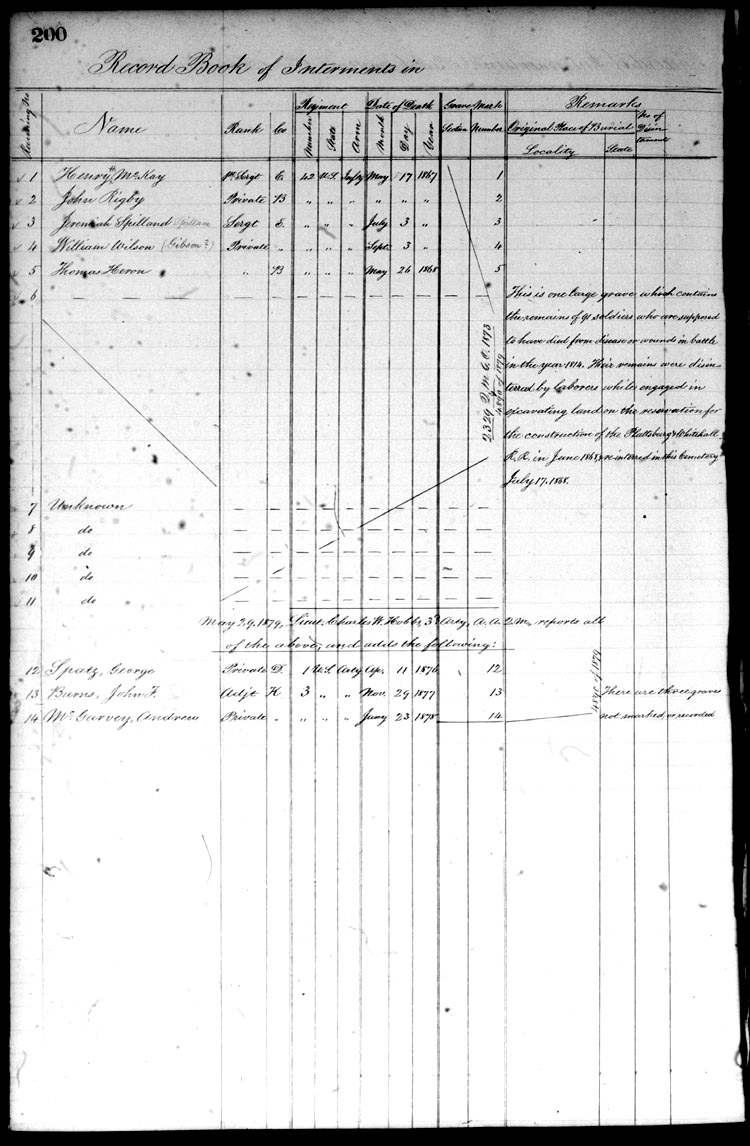 200
Record Book of Interments in
Running No Name Rank Co Regiment Number State Arm Date of Death Month Day Year Grave Mark Section Number Remarks Original Place of Burial Locality State No. of Disinterments
1 Henry McKay Sergt E 42 U.S. Infty May 17 1867 1
2 John Rigby Private B " " " " " " 2
3 Jeremiah Spilland Spillane Sergt E. " " " July 3 " 3
4 William Wilson (Gibson?) Private " " " " Sept. 3 " 4
5 Thomas Heron " B " " " May 26 1868 5
6 — — — — — — — — — — — —
This is one large grave which contains
the remains of 91 soldiers who are supposed
to have died from disease or wounds in battle
in the year 1814. Their remains were disin-
terred by laborers while engaged in
excavating land on the reservation for
the construction of the Plattsburg & Whitehall
R.R. in June 1868, & reinterred in this Cemetery
July 17. 1868.
2329 Q.M.G.O. 1873
4890 of 1879
7 Unknown — — — — — — — — — —
8 do — — — — — — — — — —
9 do — — — — — — — — — —
10 do — — — — — — — — — —
11 do — — — — — — — — — —
May 29. 1879, Lieut. Charles W. Hobbs, 3d Arty, A.A.Q.M., reports all
of the above, and adds the following:
12 Spatz, George Private D. 1 U.S. Arty Ap. 11 1876 12
13 Burns, John F. Adjt K 3 " " Nov. 29 1877 13 There are three graves
14 McGarvey, Andrew Private " " " " Jany 23 1878 14 not marked, or recorded
4890 of 1879